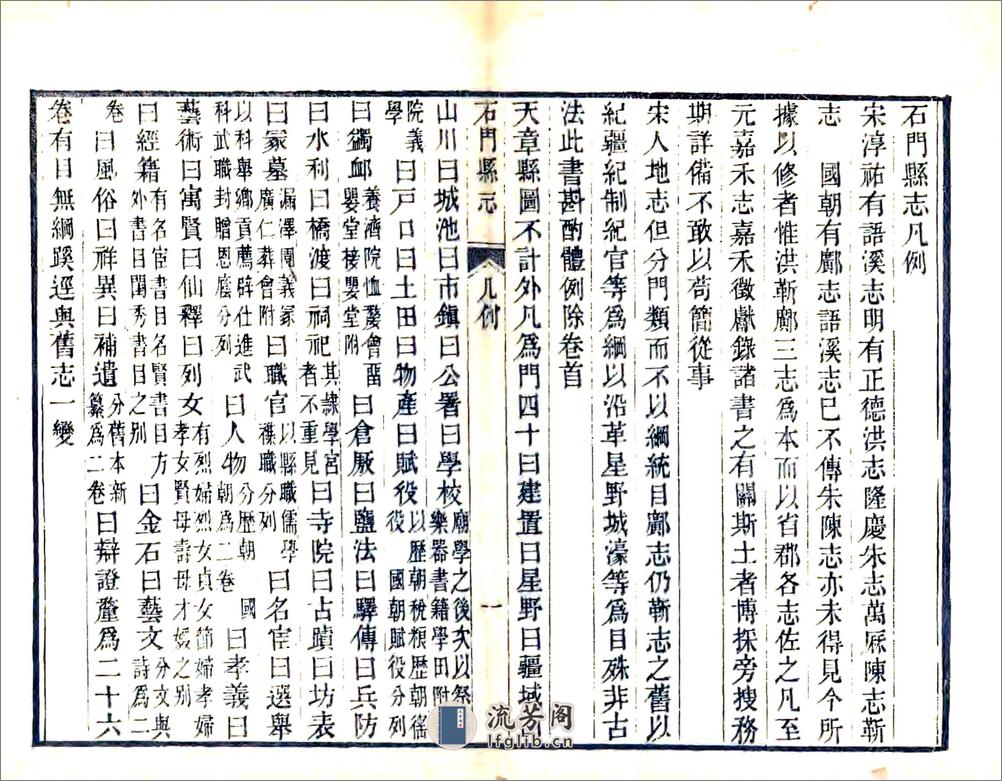 石門縣志凡例
宋淳祐有語溪志明有正德洪志隆慶朱志萬厯陳志靳
志　國朝有鄺志語溪志已不傳朱陳志亦未得見今所
據以修者惟洪靳鄺三志爲本而以省郡各志佐之凡至
元嘉禾志嘉禾徵獻錄諸書之有關斯土者博採旁搜務
期詳備不敢以苟簡從事
宋人地志但分門類而不以綱統目鄺志仍靳志之舊以
紀疆紀制紀官等爲綱以沿革星野城濠等爲目殊非古
法此書斟酌體例除卷首
天章縣圖不計外凡爲門四十曰建置曰星野曰疆域曰
石門縣志　凡例　一
山川曰城池曰市鎭曰公署曰學校廟學之後次以祭樂器書籍學田附
院義學曰戸口曰土田曰物產曰賦役以歷朝稅糧歷朝徭役　國朝賦役分列
曰蠲卹養濟院恤嫠會畱嬰堂接嬰堂附曰倉厫曰鹽法曰驛傳曰兵防
曰水利曰橋渡曰祠祀其隸學宮者不重見曰寺院曰古蹟曰坊表
曰冢墓漏澤園義冢廣仁葬會附曰職官以縣職儒學襍職分列曰名宦曰選舉
以科舉鄉貢薦辟仕進武科武職封贈恩廕分列曰人物分歷朝　國朝爲二卷曰孝義曰
藝術曰寓賢曰仙釋曰列女有烈婦烈女貞女節婦孝婦孝女賢母壽母才媛之別
曰經籍有名宦書目名賢書目方外書目閨秀書目之別曰金石曰藝文分文與詩爲二
卷曰風俗曰祥異曰補遺分舊本新纂爲二卷曰辯證釐爲二十六
卷有目無綱蹊逕與舊志一變
流芳阁
lfglib.cn